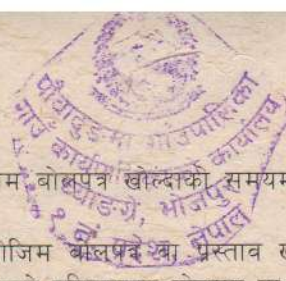 पौवादुङमा गाउँपालिका
गाउँ कार्यपालिकाको कार्यालय
भोजपुर
१ नं. प्रदेश, नेपाल
म बोलपत्र खोल्दाको समयम
ोजिम बोलपत्र वा प्रस्ताव ख